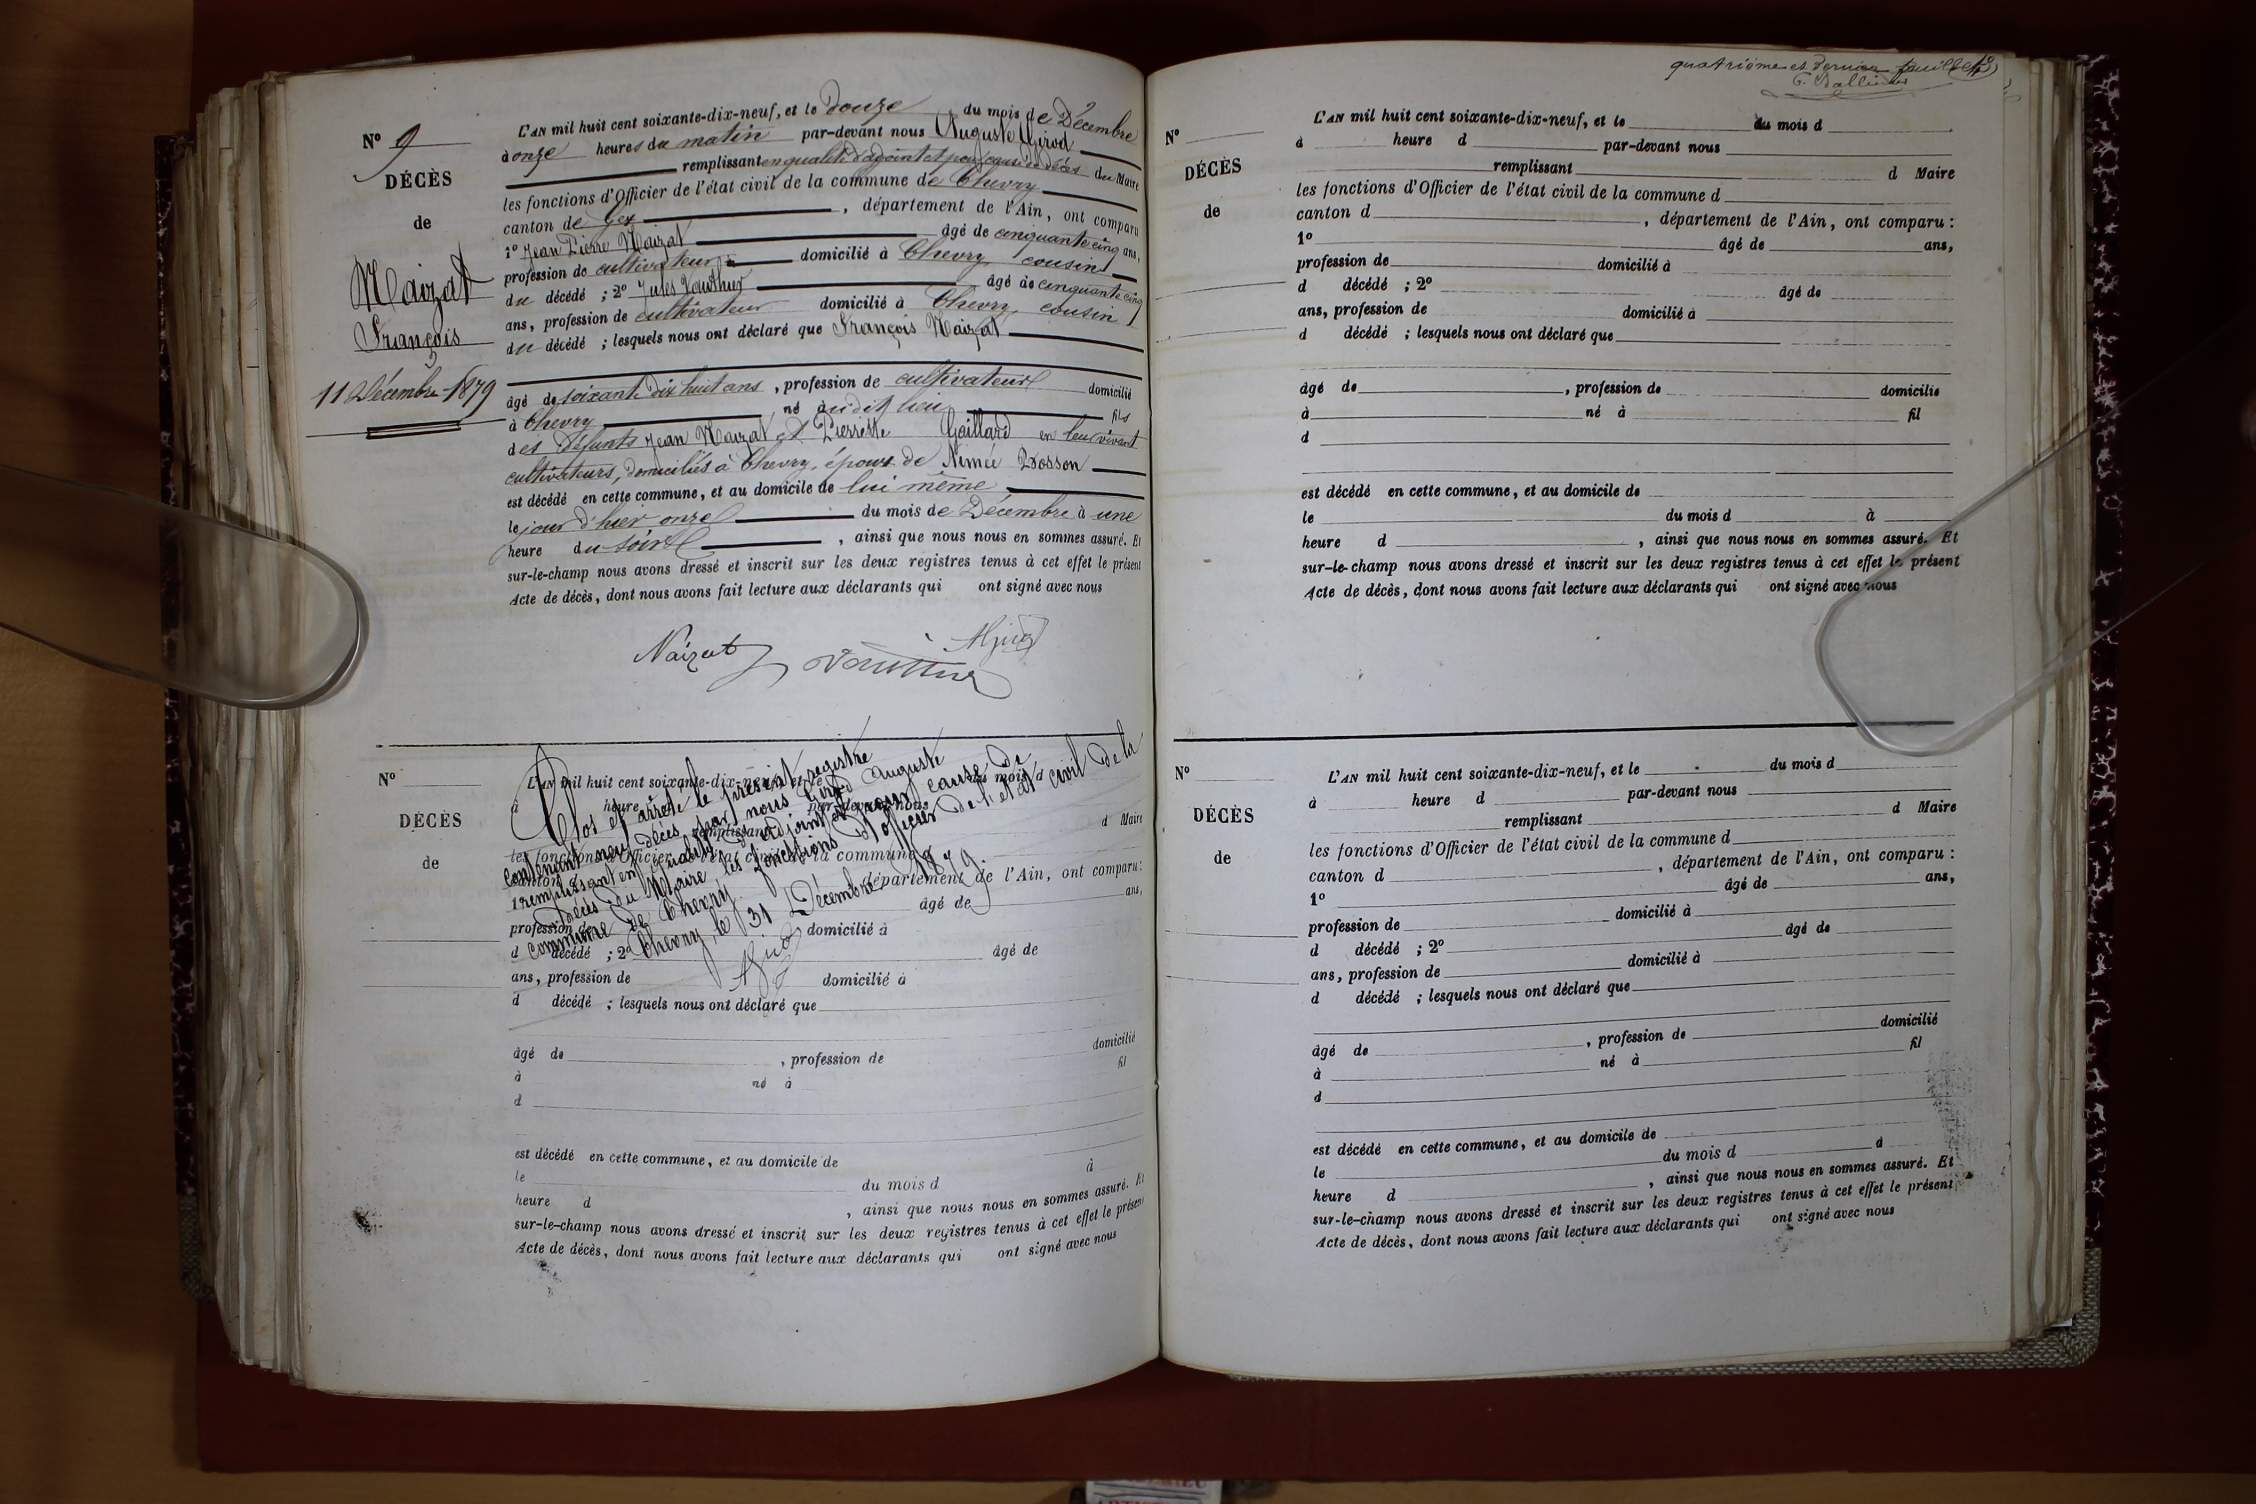 N° 9
DÉCÈS
de
Naizat
François
11 Décembre 1879
L'AN mil huit cent soixante-dix-neuf, et le douze du mois de Décembre
à onze heures du matin par-devant nous Auguste Girod
remplissant en qualité d'adjoint et pour cause de décès du Maire
les fonctions d'Officier de l'état civil de la commune de Chevry
canton de Gex, département de l'Ain, ont comparu
1° Jean Pierre Naizat âgé de cinquante cinq ans,
profession de cultivateur domicilié à Chevry cousin
du décédé ; 2° Jules Vauthier âgé de cinquante cinq
ans, profession de cultivateur domicilié à Chevry, cousin
du décédé ; lesquels nous ont déclaré que François Naizat
âgé de soixante dix huit ans, profession de cultivateur domicilié
à Chevry né au dit lieu fils
des défunts Jean Naizat et Pierrette Gaillard en leur vivant
cultivateurs, domiciliés à Chevry, époux de Aimée Dosson
est décédé en cette commune, et au domicile de lui même
le jour d'hier onze du mois de Décembre à une
heure du soir, ainsi que nous nous en sommes assuré. Et
sur-le-champ nous avons dressé et inscrit sur les deux registres tenus à cet effet le présent
Acte de décès, dont nous avons fait lecture aux déclarants qui ont signé avec nous
Naizat Vauthier AGirod
N°
DÉCÈS
de
L'AN mil huit cent soixante-dix-neuf, et le du mois d
à heure d par-devant nous
remplissant d Maire
les fonctions d'Officier de l'état civil de la commune d
canton d, département de l'Ain, ont comparu :
1° âgé de ans,
profession de domicilié à
d décédé ; 2° âgé de
ans, profession de domicilié à
d décédé ; lesquels nous ont déclaré que
Clos et arrêté le présent registre
contenant neuf décès par nous Girod Auguste
remplissant en qualité d'adjoint et pour cause de
décès du Maire les fonctions d'officier de l'état civil de la
commune de Chevry.
Chevry, le 31 Décembre 1879.
AGirod
âgé de, profession de domicilié
à né à fil
d
est décédé en cette commune, et au domicile de
le du mois d à
heure d, ainsi que nous nous en sommes assuré. Et
sur-le-champ nous avons dressé et inscrit sur les deux registres tenus à cet effet le présent
Acte de décès, dont nous avons fait lecture aux déclarants qui ont signé avec nous
quatrième et dernier feuillet
N°
DÉCÈS
de
L'AN mil huit cent soixante-dix-neuf, et le du mois d
à heure d par-devant nous
remplissant d Maire
les fonctions d'Officier de l'état civil de la commune d
canton d, département de l'Ain, ont comparu :
1° âgé de ans,
profession de domicilié à
d décédé ; 2° âgé de
ans, profession de domicilié à
d décédé ; lesquels nous ont déclaré que
âgé de, profession de domicilié
à né à fil
d
est décédé en cette commune, et au domicile de
le du mois d à
heure d, ainsi que nous nous en sommes assuré. Et
sur-le-champ nous avons dressé et inscrit sur les deux registres tenus à cet effet le présent
Acte de décès, dont nous avons fait lecture aux déclarants qui ont signé avec nous
N°
DÉCÈS
de
L'AN mil huit cent soixante-dix-neuf, et le du mois d
à heure d par-devant nous
remplissant d Maire
les fonctions d'Officier de l'état civil de la commune d
canton d, département de l'Ain, ont comparu :
1° âgé de ans,
profession de domicilié à
d décédé ; 2° âgé de
ans, profession de domicilié à
d décédé ; lesquels nous ont déclaré que
âgé de, profession de domicilié
à né à fil
d
est décédé en cette commune, et au domicile de
le du mois d à
heure d, ainsi que nous nous en sommes assuré. Et
sur-le-champ nous avons dressé et inscrit sur les deux registres tenus à cet effet le présent
Acte de décès, dont nous avons fait lecture aux déclarants qui ont signé avec nous